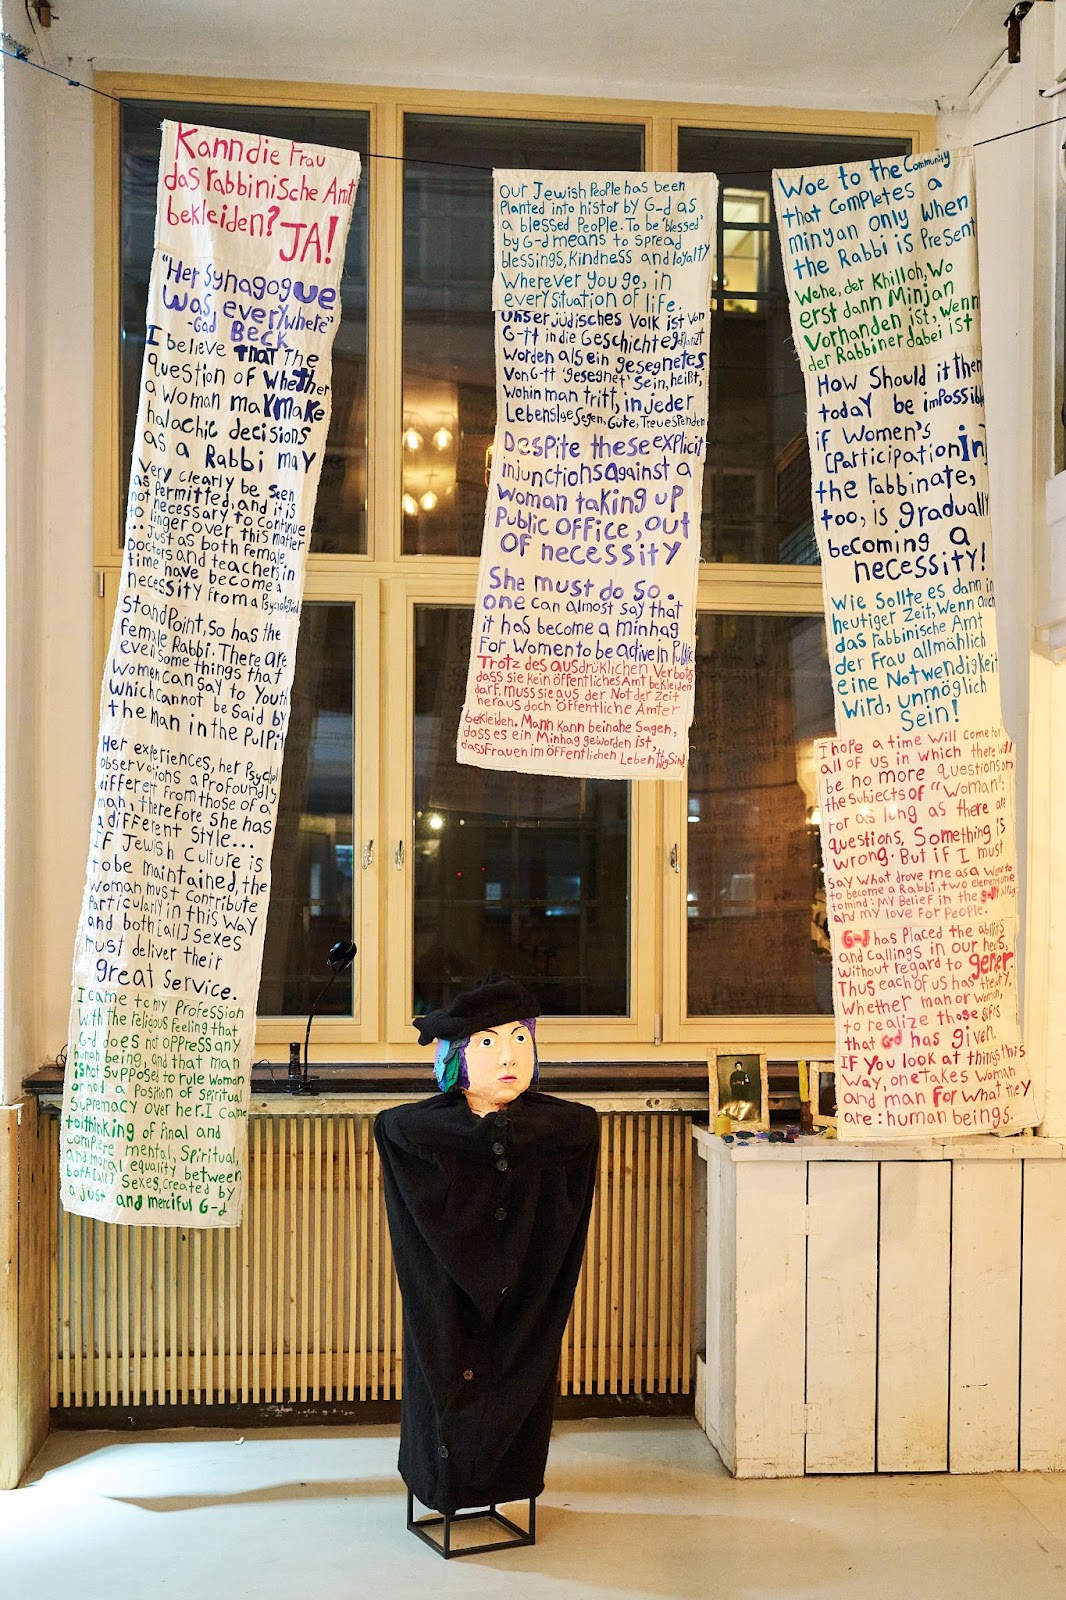 Kann die Frau
das rabbinische Amt
bekleiden?
JA!
"Her Synagogue
was everywhere"
-Gad Beck
I believe THAT The
question of whether
a woman may make
halachic decisions
as a Rabbi may
Very clearly be seen
as Permitted, and it is
not necessary to continue
to linger over this matter
... Just as both female
Doctors and teachers in
time have become a
necessity from a Psychological
StandPoint, so has the
female Rabbi. There are
even some things that
Women can say to Youth
which cannot be said by
the man in the Pulpit
Her experiences, her Psychol
observations a Profoundly
different from those of a
man, therefore she has
a different style...
If Jewish Culture is
to be maintained, the
woman must contribute
Particularly in this way
and both [all] sexes
must deliver their
great service.
I came to my Profession
With the religious feeling that
G-d does not oppress any
human being, and that man
is not supposed to rule woman
or hold a position of spiritual
supremacy over her. I came
to thinking of final and
complete mental, spiritual,
and moral equality between
both [all] sexes, created by
a just and merciful G-d
Our Jewish People has been
Planted into histor by G-d as
a blessed People. To be 'blessed'
by G-d means to spread
blessings, Kindness and loyalty
Wherever you go, in
every situation of life.
Unser jüdisches Volk ist von
G-tt in die Geschichte gepflanzt
worden als ein gesegnetes.
Von G-tt 'gesegnet' sein, heißt,
wohin man tritt, in jeder
Lebenslge Segen, Güte, Treue spenden
Despite these explicit
injunctions against a
woman taking up
Public office, out
of necessity
She must do so.
one can almost say that
it has become a minhag
For Women to be active in Public
Trotz des ausdrüklichen Verbots
dass sie kein öffentliches Amt bekleiden
darf, muss sie aus der Not der Zeit
heraus doch öffentliche Ämter
bekleiden. Mann kann beinahe sagen,
dass es ein Minhag geworden ist,
dass Frauen im öffentlichen Leben ttätig Sind
Woe to the Community
that completes a
minyan only when
the Rabbi is Present
Wehe, der Khilloh, wo
erst dann Minjan
vorhanden ist, wenn
der Rabbiner dabei ist
How Should it then
today be impossible
if Women's
[Participation in]
the rabbinate,
too, is gradually
becoming a
necessity!
Wie sollte es dann in
heutiger Zeit, wenn auch
das rabbinische Amt
der Frau allmählich
eine Notwendigkeit
wird, unmöglich
Sein!
I hope a time will come for
all of us in which there will
be no more questions on
the subjects of "Woman":
For as long as there are
questions, Something is
wrong. But if I must
say what drove me as a Woman
to become a Rabbi, two elements come
to mind: My Belief in the
and my love for People.
G-d has placed the abilities
and callings in our hearts,
without regard to gender.
Thus each of us has the duty,
Whether man or woman,
to realize those gifts
that G-d has given.
If you look at things this
way, one takes woman
and man for what they
are: human beings.